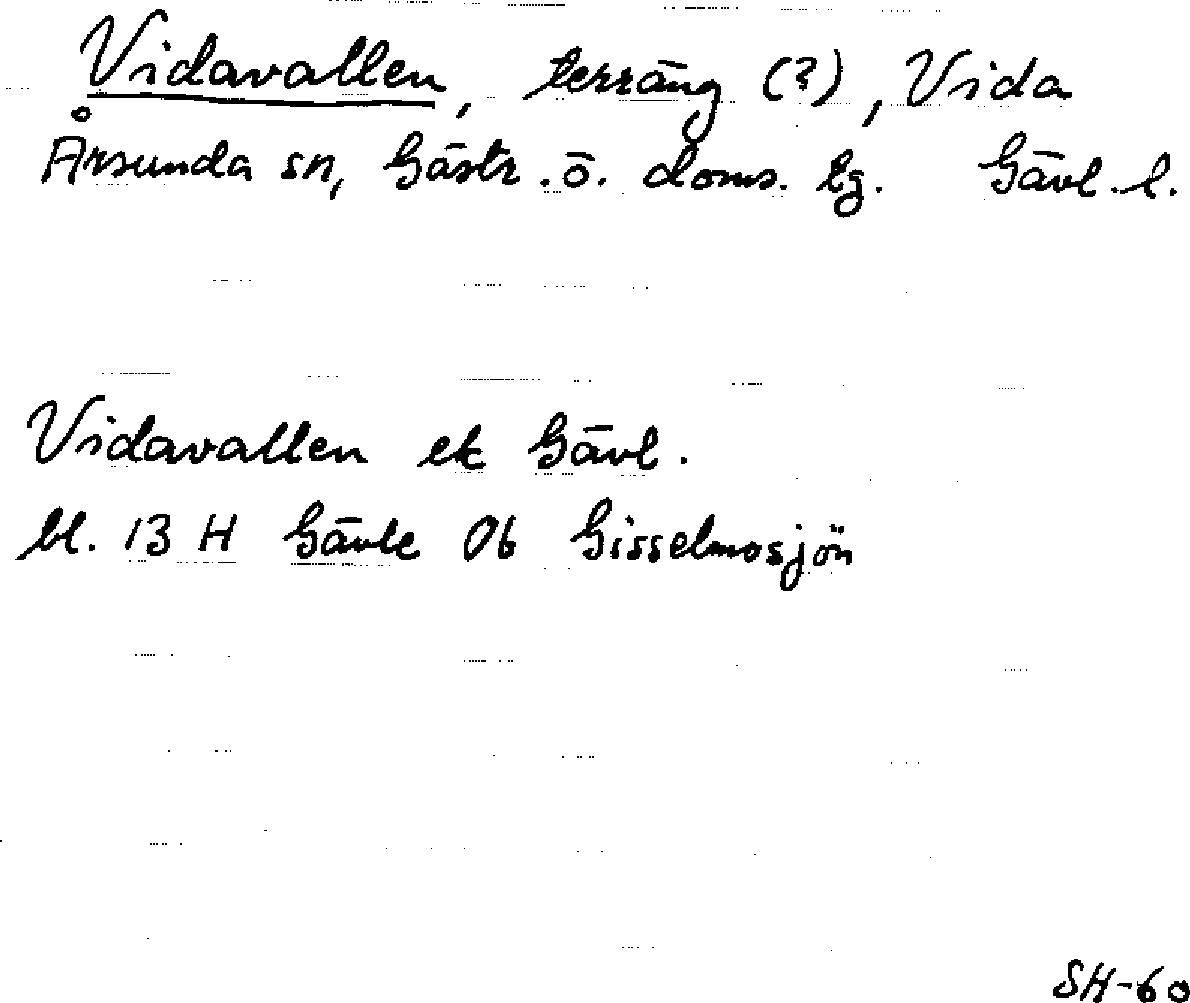 Vidavallen, terräng (?), Vida
Årsunda sn, Gästr. ö. doms. lg. Gävl. l.
Vidavallen ek Gävl.
bl. 13 H Gävle 0b Gisselmosjön
SH-60